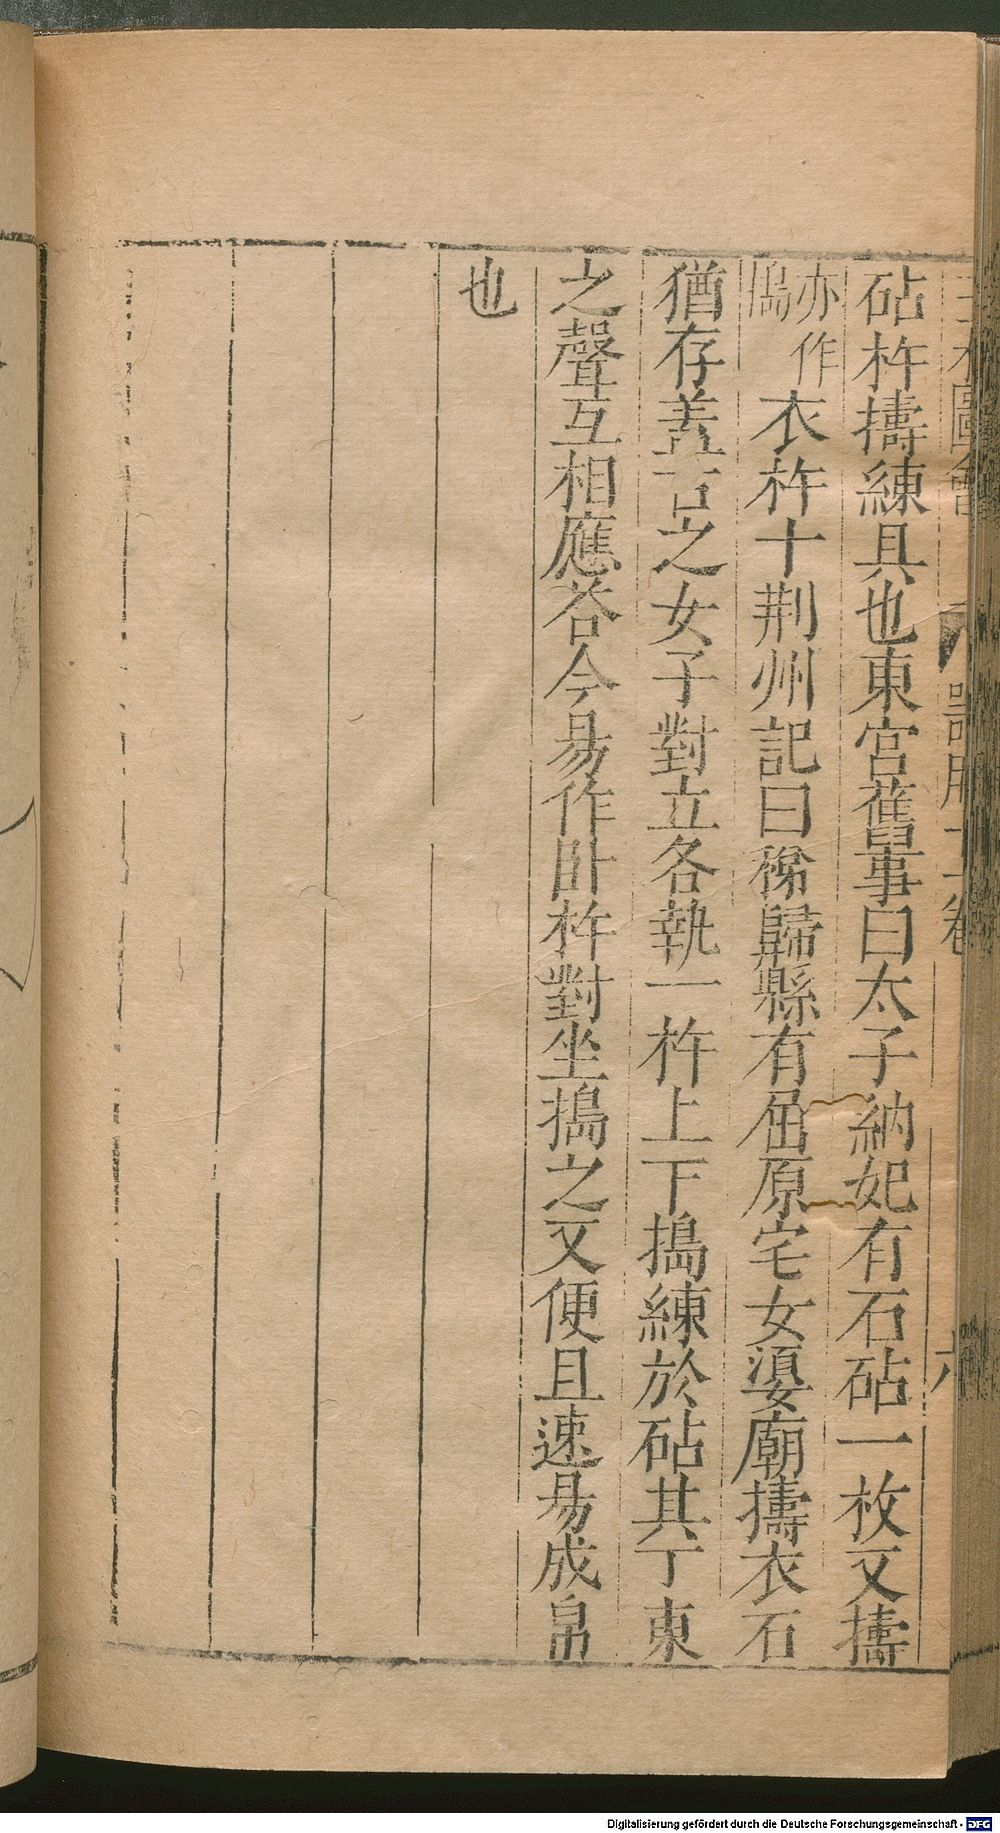 三才圖會 器用十一卷 六
砧杵擣練具也東宮舊事曰太子納妃有石砧一枚又擣
亦作擣衣杵十荆州記曰秭歸縣有屈原宅女媭廟擣衣石
猶存盖古之女子對立各執一杵上下搗練於砧其丁東
之聲互相應荅今易作卧杵對坐搗之又便且速易成帛
也
Digitalisierung gefördert durch die Deutsche Forschungsgemeinschaft - DFG